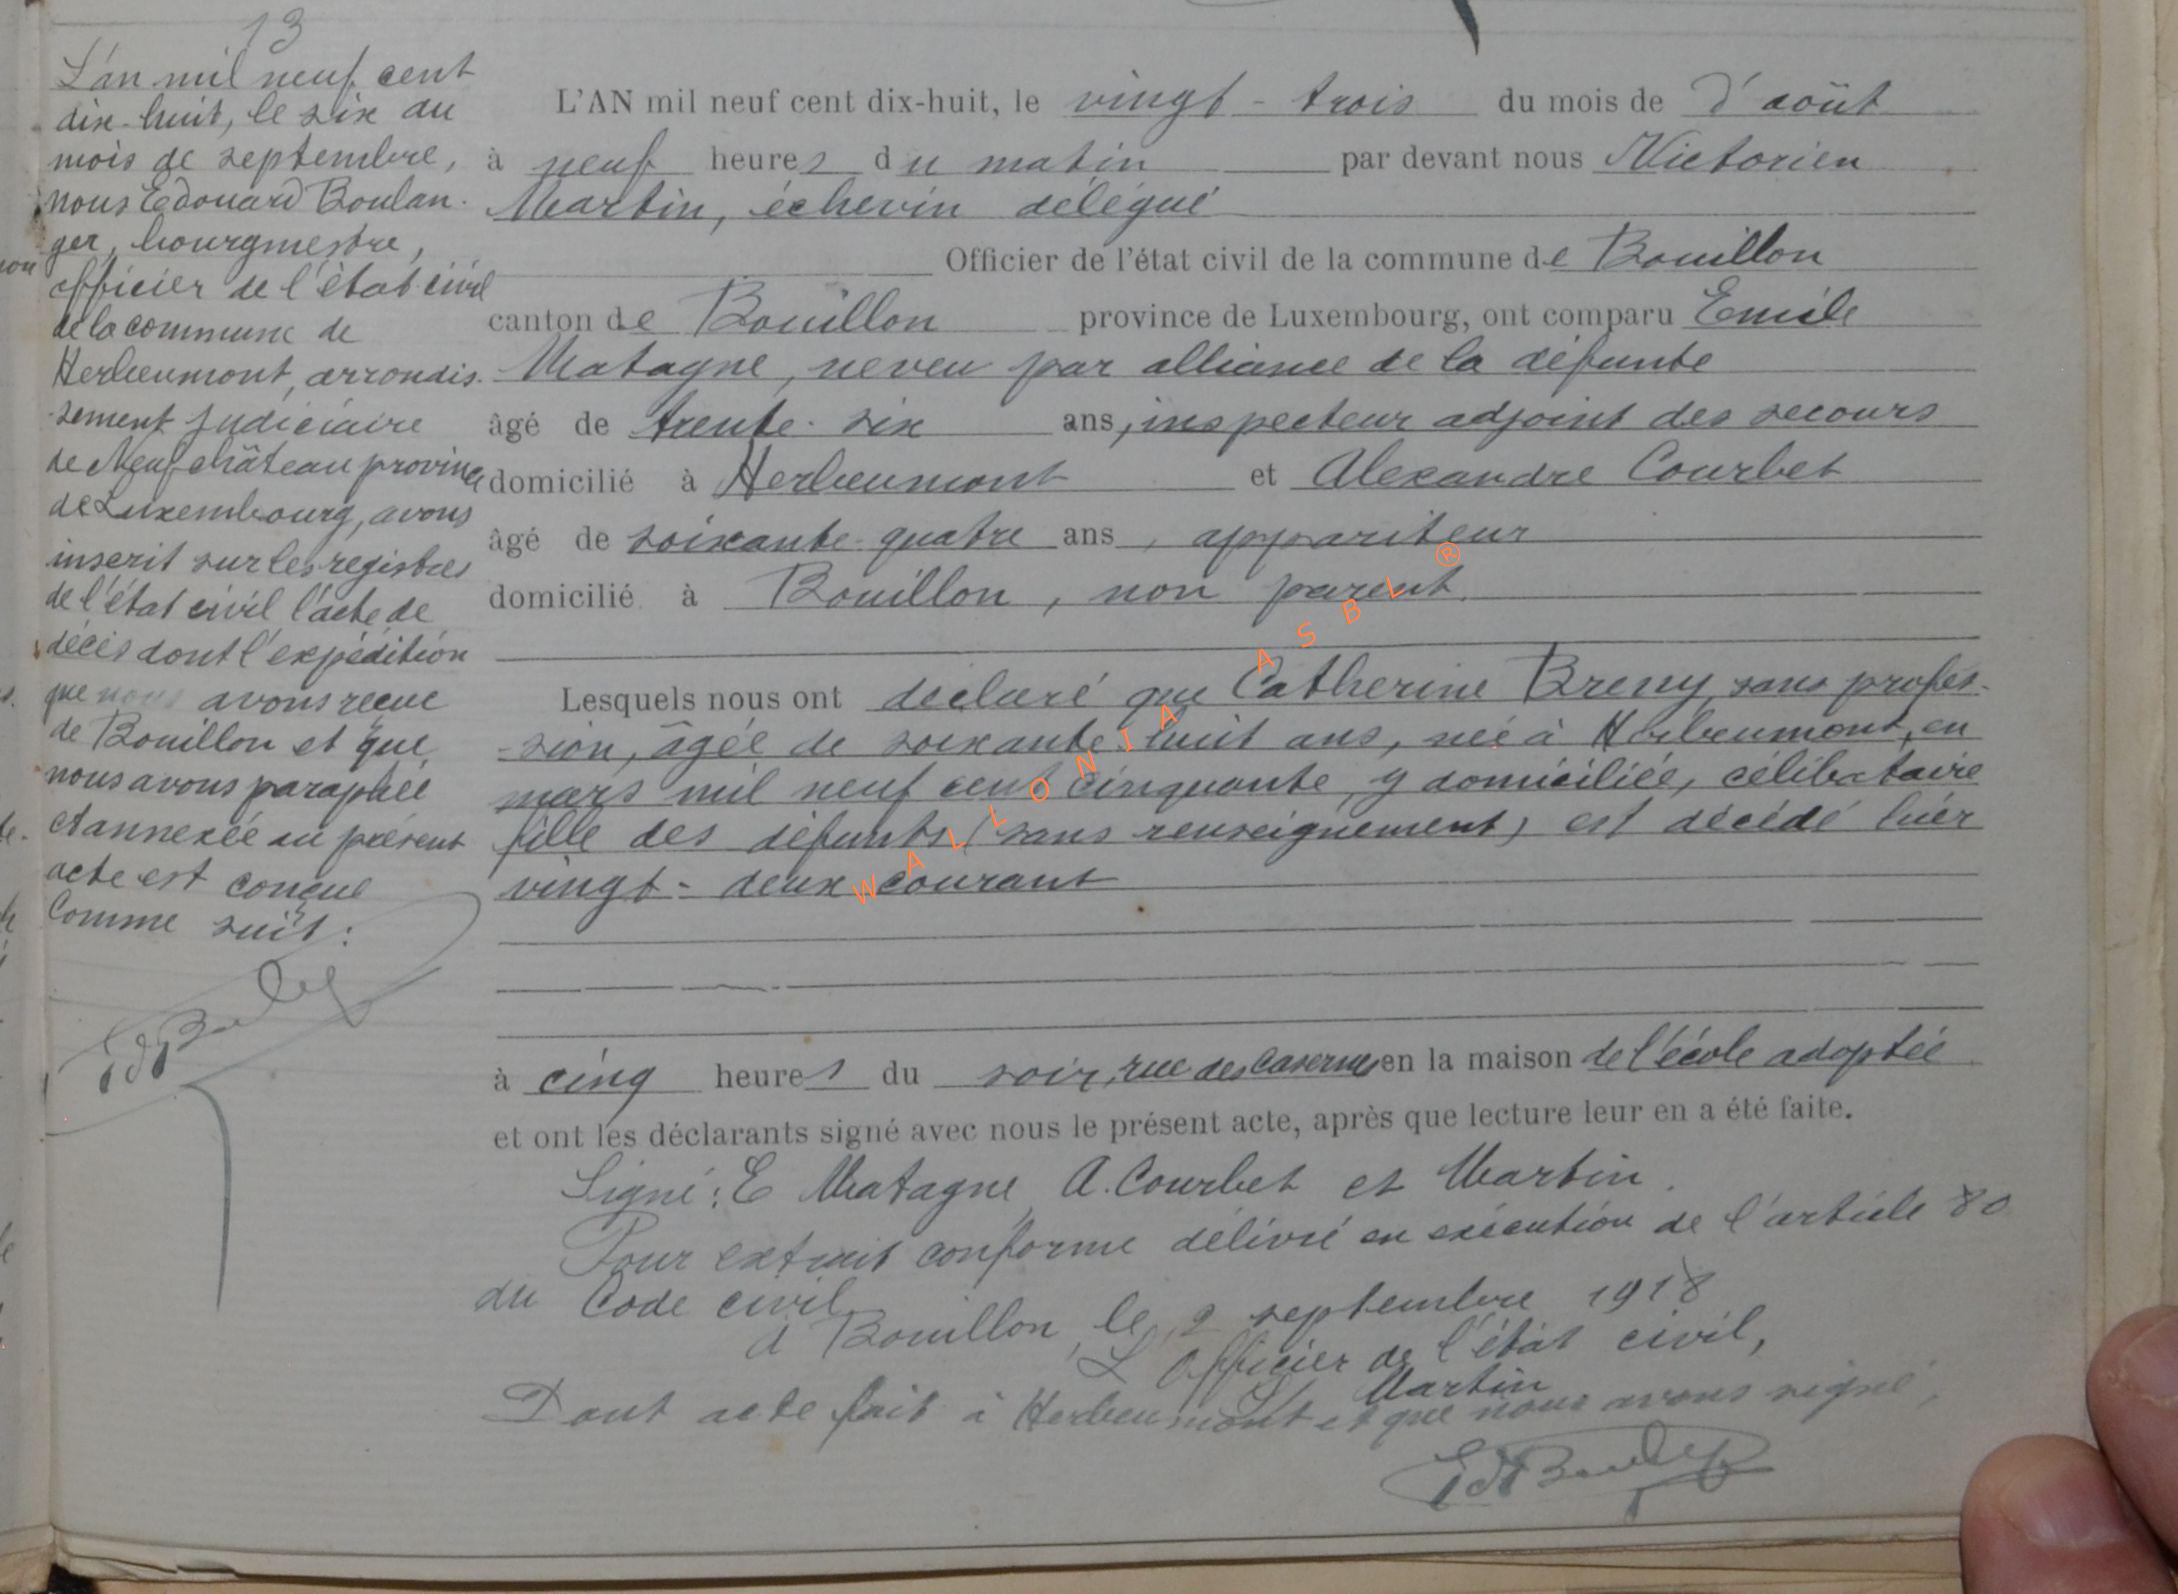 13
L'an mil neuf cent
dix-huit, le six du
mois de septembre,
nous Edouard Boulan-
ger, bourgmestre,
officier de l'état civil
de la commune de
Herbeumont, arrondis-
sement judiciaire
de Neufchâteau province
de Luxembourg, avons
inscrit sur les registres
de l'état civil l'acte de
décès dont l'expédition
que nous avons reçue
de Bouillon et que
nous avons paraphée
et annexée au présent
acte est conçue
comme suit :
L'AN mil neuf cent dix-huit, le vingt-trois du mois de d'août
à neuf heures du matin par devant nous Victorien
Martin, échevin délégué
Officier de l'état civil de la commune de Bouillon
canton de Bouillon province de Luxembourg, ont comparu Emile
Matagne, neveu par alliance de la défunte
âgé de trente-six ans, inspecteur adjoint des secours
domicilié à Herbeumont et Alexandre Courbet
âgé de soixante-quatre ans, appariteur
domicilié à Bouillon, non parent.
Lesquels nous ont déclaré que Catherine Breny, sans profes-
-sion, âgée de soixante-huit ans, née à Herbeumont, en
mars mil neuf cent cinquante, y domiciliée, célibataire
fille des défunts (sans renseignement) est décédé hier
vingt-deux courant
à cinq heures du soir, rue des Casernes en la maison de l'école adoptée
et ont les déclarants signé avec nous le présent acte, après que lecture leur en a été faite.
Signé : E Matagne, A. Courbet et Martin.
Pour extrait conforme délivré en exécution de l'article 80
du Code civil
à Bouillon, le 2 septembre 1918
L'Officier de l'état civil,
Martin
Dont acte fait à Herbeumont et que nous avons signé,
WALLONIA ASBL ®